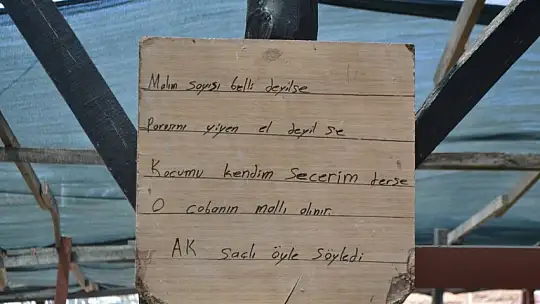 Malın sayısı belli deyilse
Parasını yiyen el deyil se
Kocumu kendim Secerim derse
O cobanın mallı alınır.
AK saclı öyle söyledi